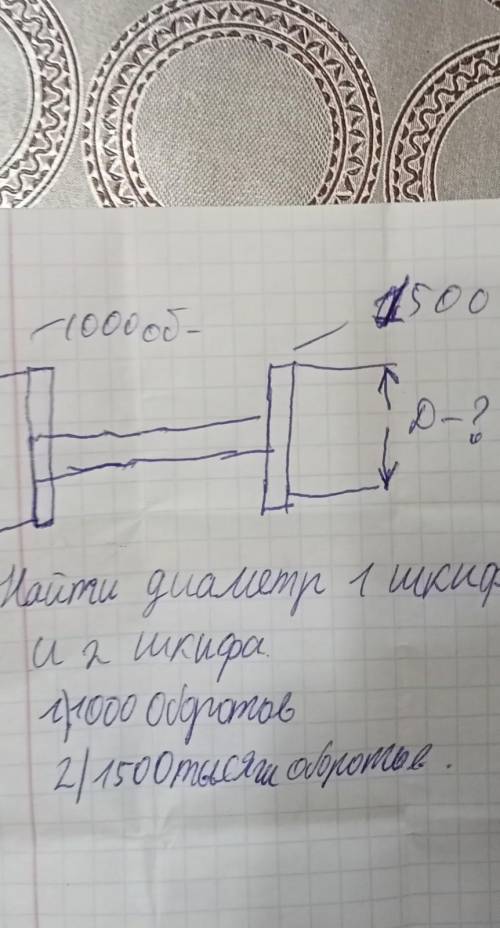 1000 об-
1500
D-?
Найти диаметр 1 шкиф
и 2 шкифа.
1) 1000 оборотов
2) 1500 тысячи оборотов.